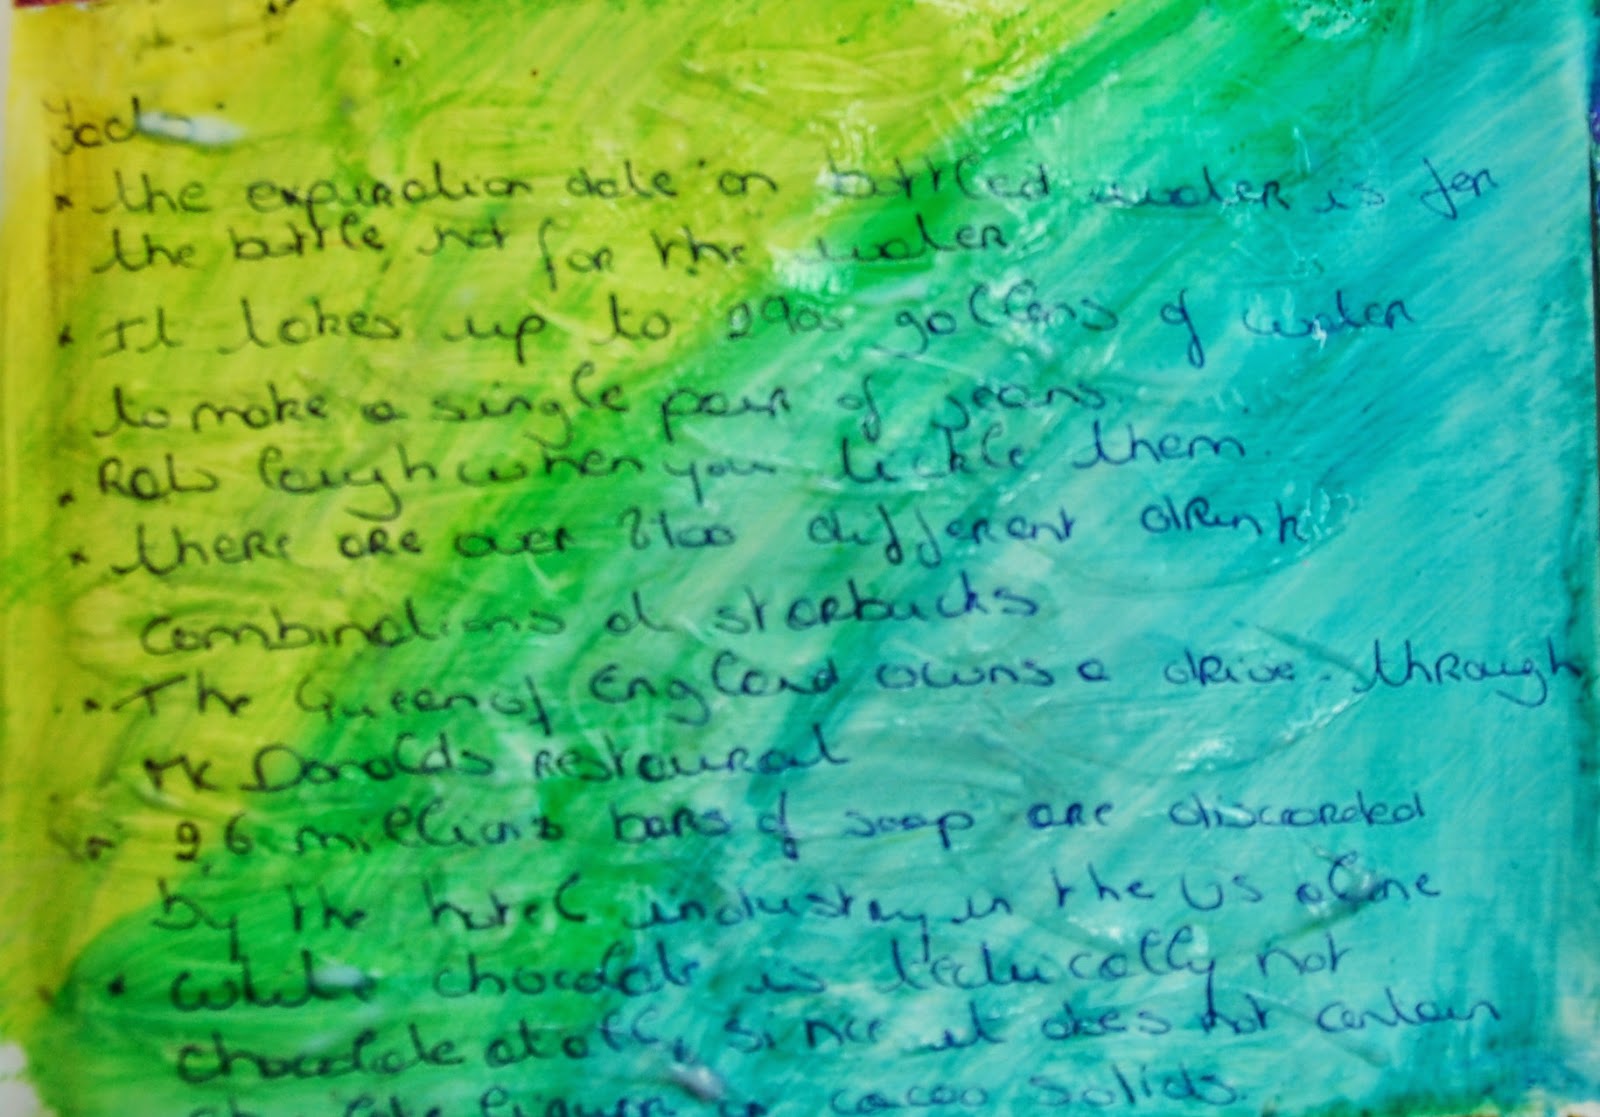 Facts
* the expiration date on bottled water is for
the bottle not for the water
* It takes up to 2900 gallons of water
to make a single pair of jeans.
* Rats laugh when you tickle them.
* there are over 8700 different drink
combinations at starbucks
* The Queen of England owns a drive-through
McDonalds restaurat
* 26 millions bars of soap are discarded
by the hotel industry in the US alone
* white chocolate is technically not
chocolate at all, since it does not contain
chocolate liquor or cacao solids.